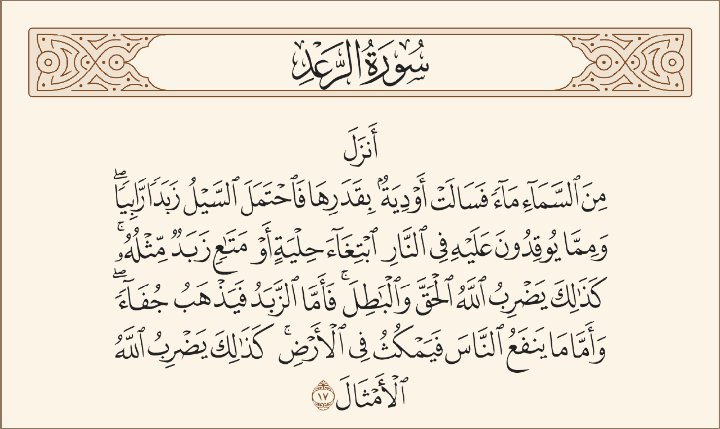 سُورَةُ الرَّعْدِ
أَنزَلَ
مِنَ ٱلسَّمَآءِ مَآءٗ فَسَالَتۡ أَوۡدِيَةُۢ بِقَدَرِهَا فَٱحۡتَمَلَ ٱلسَّيۡلُ زَبَدٗا رَّابِيٗاۖ
وَمِمَّا يُوقِدُونَ عَلَيۡهِ فِي ٱلنَّارِ ٱبۡتِغَآءَ حِلۡيَةٍ أَوۡ مَتَٰعٖ زَبَدٞ مِّثۡلُهُۥۚ
كَذَٰلِكَ يَضۡرِبُ ٱللَّهُ ٱلۡحَقَّ وَٱلۡبَٰطِلَۚ فَأَمَّا ٱلزَّبَدُ فَيَذۡهَبُ جُفَآءٗۖ
وَأَمَّا مَا يَنفَعُ ٱلنَّاسَ فَيَمۡكُثُ فِي ٱلۡأَرۡضِۚ كَذَٰلِكَ يَضۡرِبُ ٱللَّهُ
ٱلۡأَمۡثَالَ ١٧